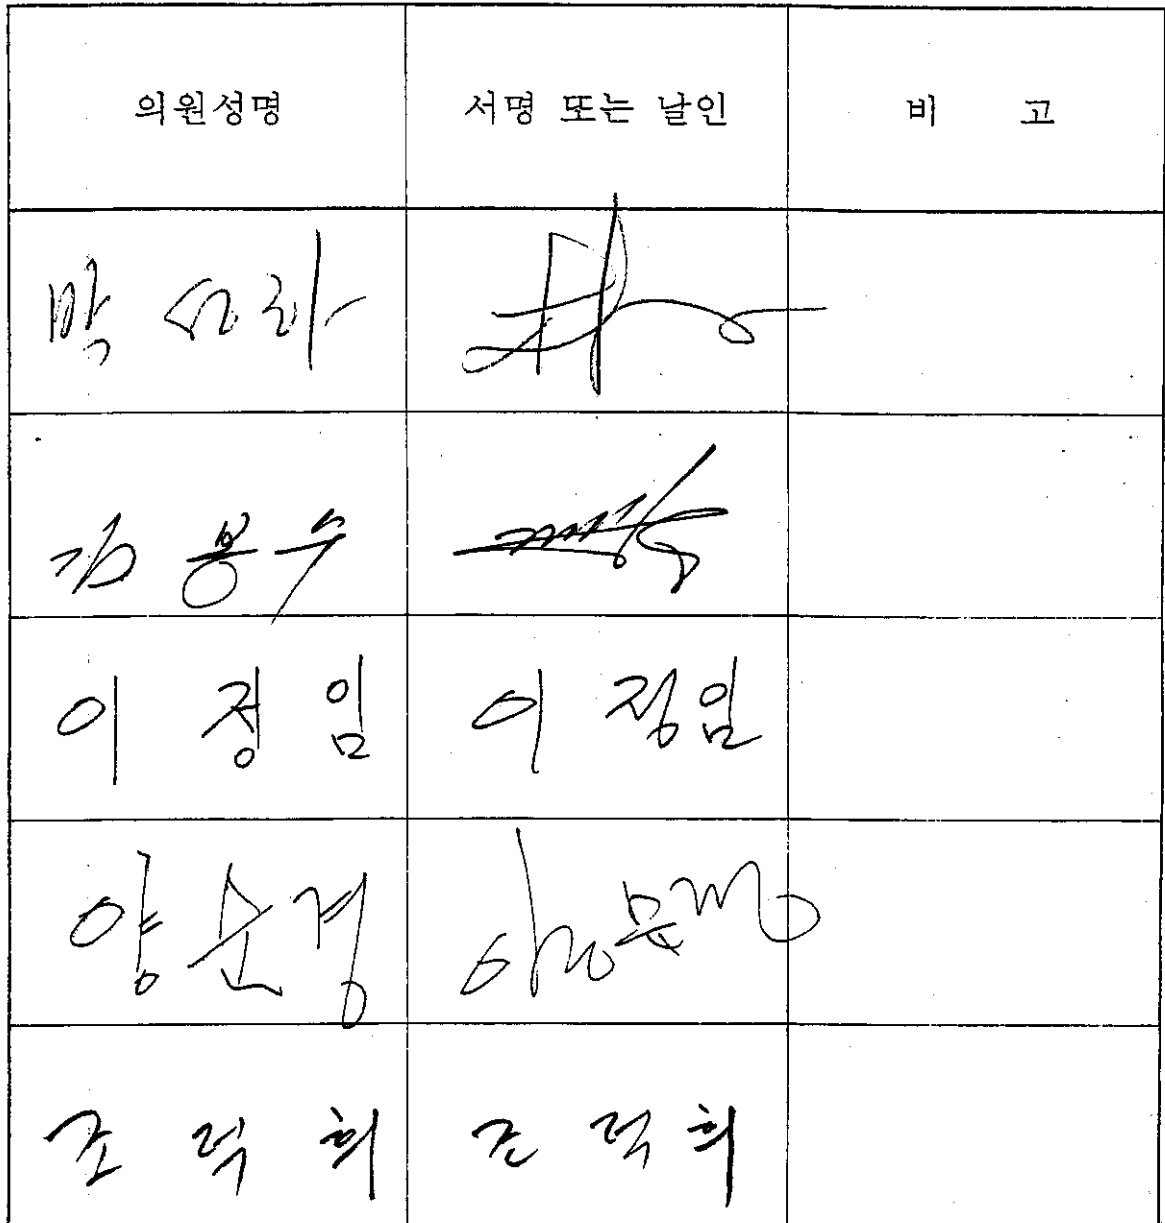 의원성명 서명 또는 날인 비 고
박
김 용수
이 정 임 이 정임
양 순 경
조 덕 희 조 덕 희